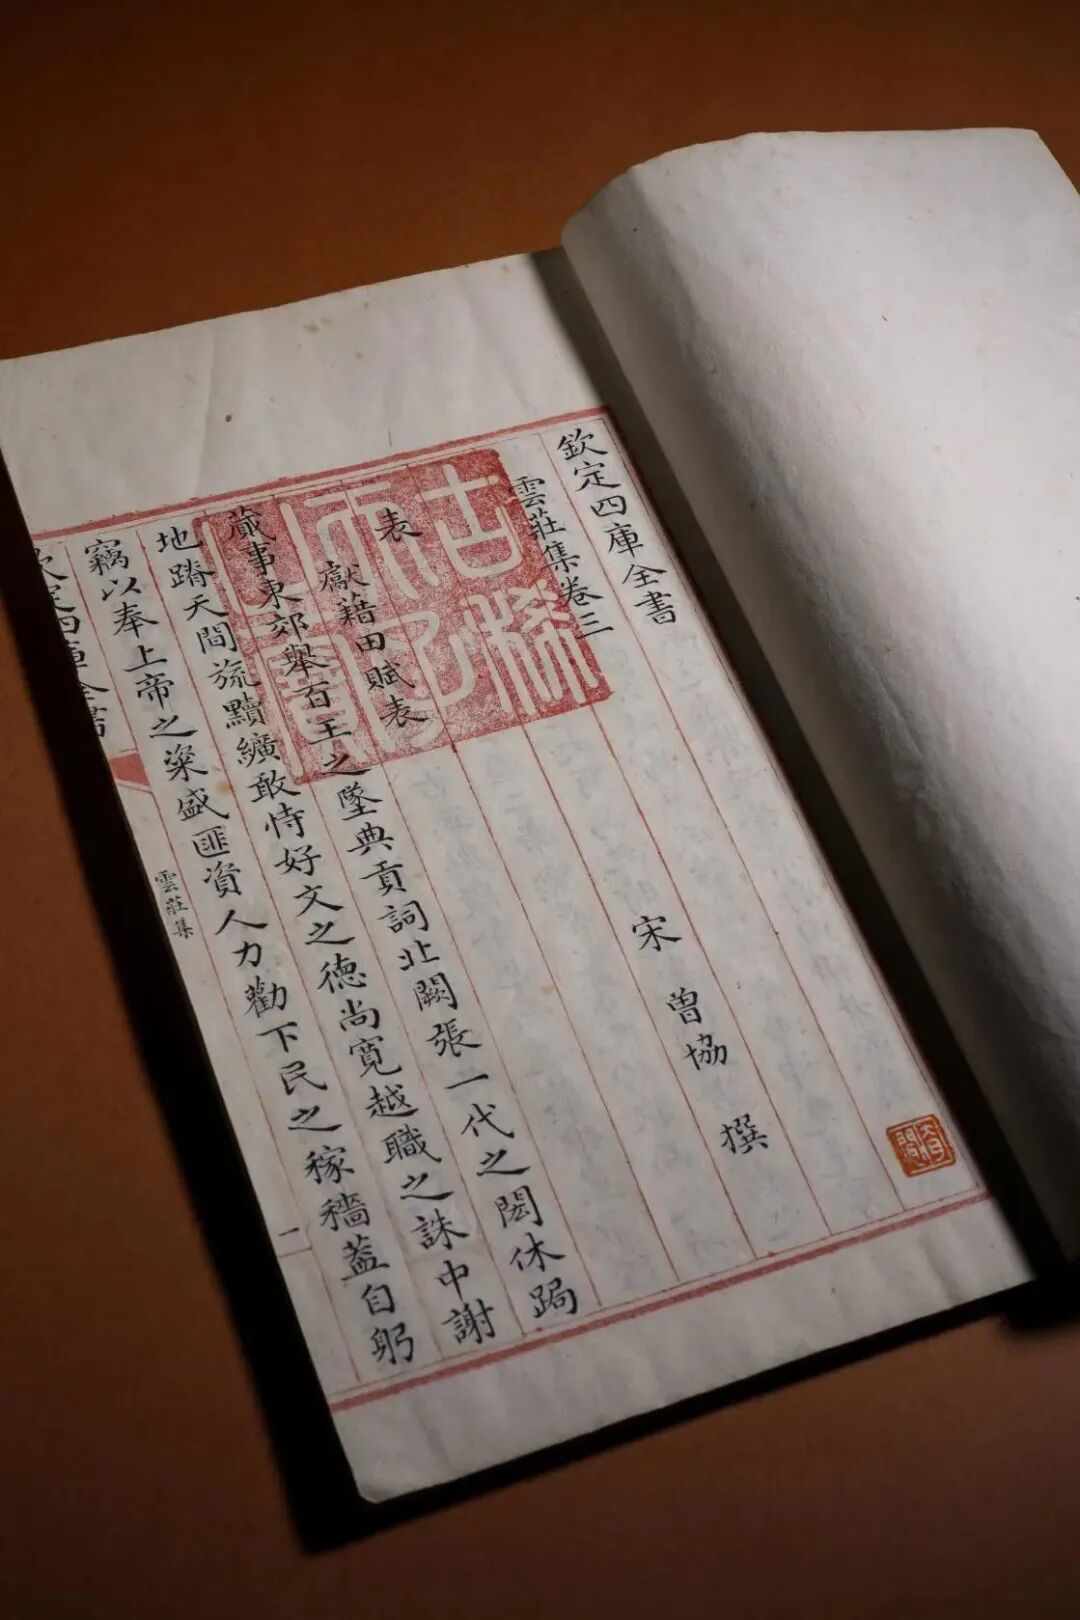 欽定四庫全書
雲莊集卷三
宋 曾協 撰
表
獻籍田賦表
蕆事東郊舉百王之墜典貢詞北闕張一代之閎休跼
地蹐天間旒黈纊敢恃好文之德尚寬越職之誅中謝
竊以奉上帝之粢盛匪資人力勸下民之稼穡蓋自躬
欽定四庫全書
雲莊集
一
古稀天子之寶